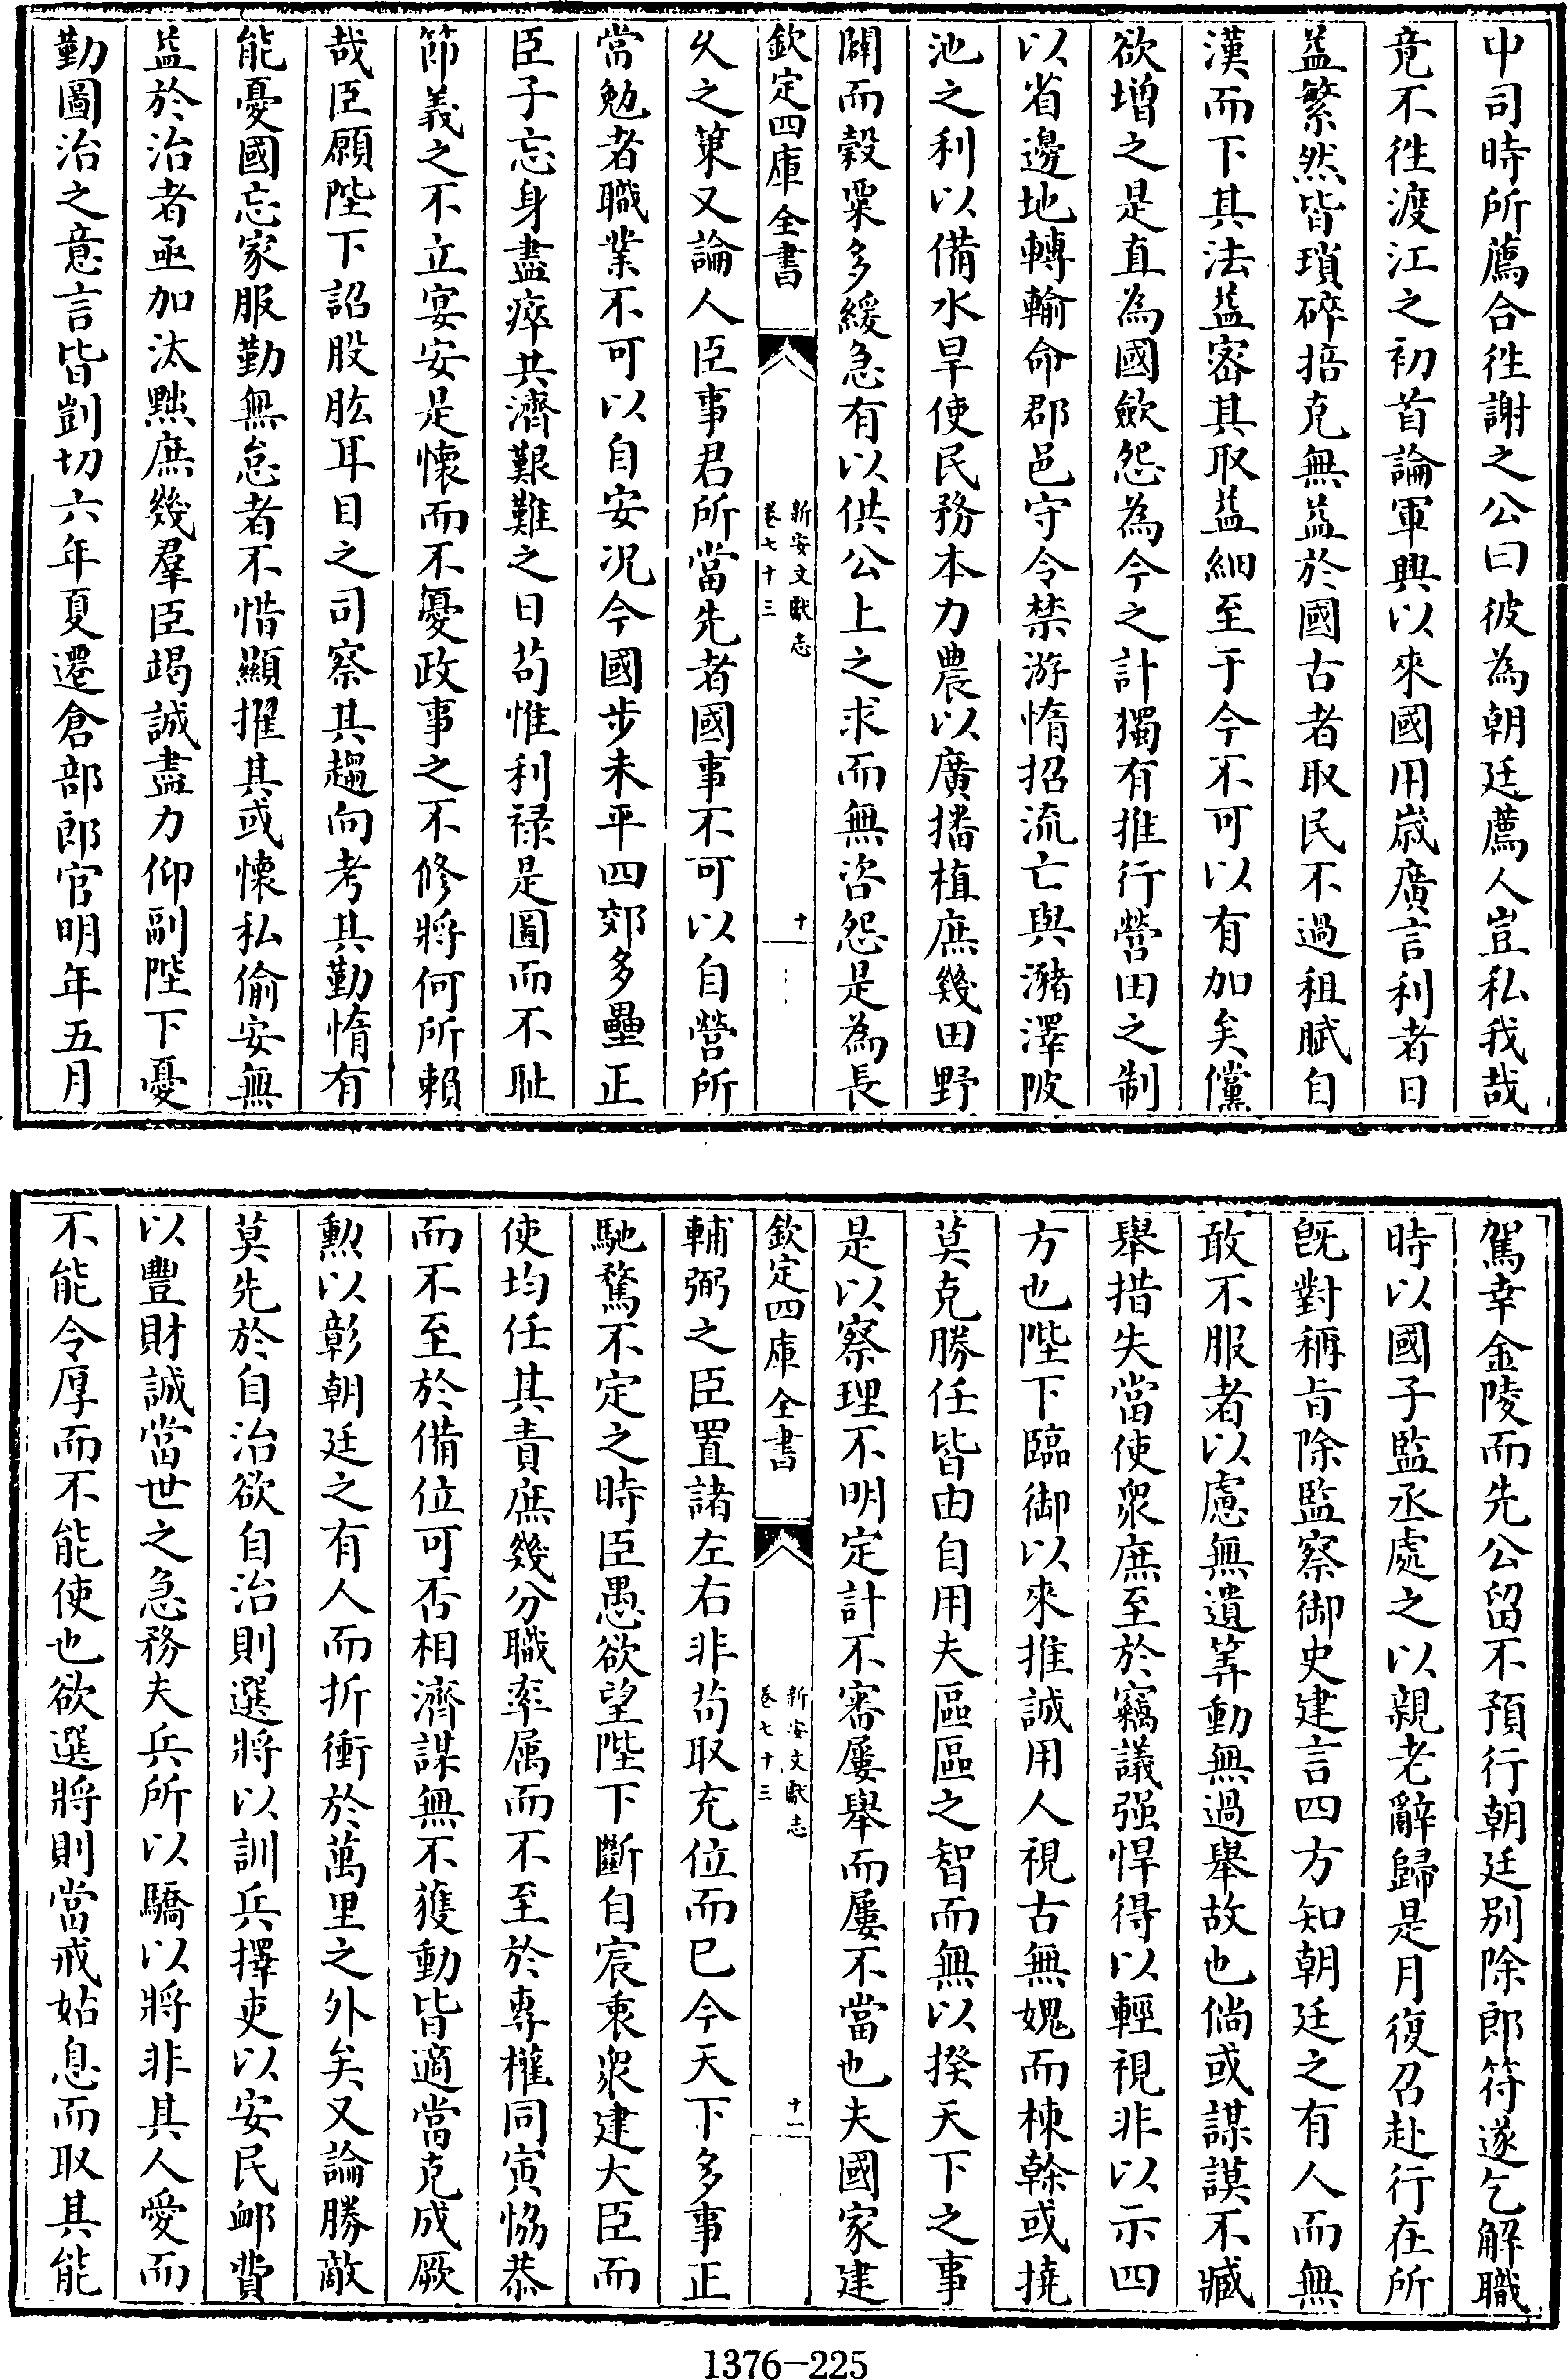 中司時所薦合徃謝之公曰彼為朝廷薦人豈私我哉
竟不徃渡江之初首論軍興以來國用嵗廣言利者日
益繁然皆瑣碎掊克無益於國古者取民不過租賦自
漢而下其法益宻其取益細至于今不可以有加矣儻
欲增之是直為國歛怨為今之計獨有推行營田之制
以省邊地轉輸命郡邑守令禁游惰招流亡與瀦澤陂
池之利以備水旱使民務本力農以廣播植庶幾田野
闢而榖粟多緩急有以供公上之求而無咨怨是為長
欽定四庫全書
新安文獻志
卷七十三
十
久之策又論人臣事君所當先者國事不可以自營所
當勉者職業不可以自安况今國步未平四郊多壘正
臣子忘身盡瘁共濟艱難之日苟惟利禄是圖而不恥
節義之不立宴安是懷而不憂政事之不修將何所頼
哉臣願陛下詔股肱耳目之司察其趨向考其勤惰有
能憂國忘家服勤無怠者不惜顯擢其或懷私偷安無
益於治者亟加汰黜庶幾羣臣竭誠盡力仰副陛下憂
勤圖治之意言皆剴切六年夏遷倉部郎官明年五月
駕幸金陵而先公留不預行朝廷别除郎符遂乞解職
時以國子監丞處之以親老辭歸是月復召赴行在所
既對稱㫖除監察御史建言四方知朝廷之有人而無
敢不服者以慮無遺筭動無過舉故也倘或謀謨不臧
舉措失當使衆庶至於竊議强悍得以輕視非以示四
方也陛下臨御以來推誠用人視古無媿而棟幹或撓
莫克勝任皆由自用夫區區之智而無以揆天下之事
是以察理不明定計不審屢舉而屢不當也夫國家建
欽定四庫全書
新安文獻志
卷七十三
十一
輔弼之臣置諸左右非茍取充位而已今天下多事正
馳騖不定之時臣愚欲望陛下斷自宸衷衆建大臣而
使均任其責庶幾分職率属而不至於専權同寅恊恭
而不至於備位可否相濟謀無不獲動皆適當克成厥
勲以彰朝廷之有人而折衝於萬里之外矣又論勝敵
莫先於自治欲自治則選將以訓兵擇吏以安民䘏費
以豐財誠當世之急務夫兵所以驕以將非其人愛而
不能令厚而不能使也欲選將則當戒姑息而取其能
1376-225